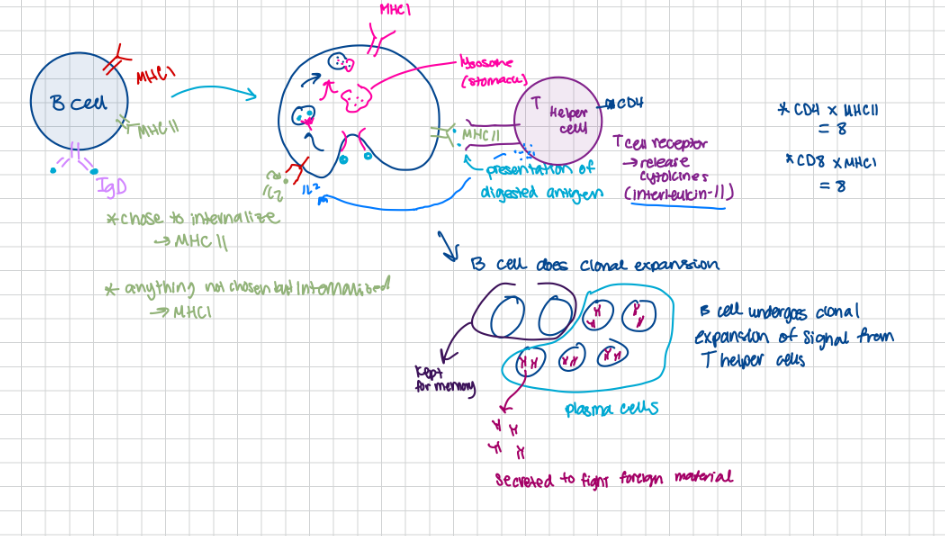 MHC1
B cell
MHC1
MHC II
IgD
* chose to internalize
→ MHC II
* anything not chosen but internalised
→ MHC1
lysosome
(stomach)
MHC II
IL2
IL2
T Helper
cell
CD4
T cell receptor
→ release
cytokines
(interleukin-II)
presentation of
digested antigen
* CD4 x MHCII
= 8
* CD8 x MHC1
= 8
B cell does clonal expansion
Kept
for memory
plasma cells
secreted to fight foreign material
B cell undergoes clonal
expansion of signal from
T helper cells